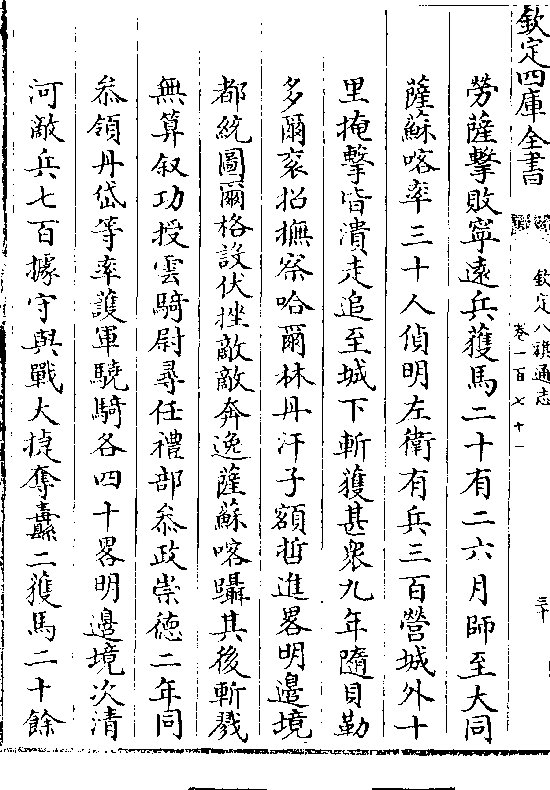 欽定四庫全書
欽定八旗通志
卷一百七十一
三十
勞薩擊敗寧遠兵獲馬二十有二六月師至大同
薩蘇喀率三十人偵明左衛有兵三百營城外十
里掩擊皆潰走追至城下斬獲甚衆九年隨貝勒
多爾衮招撫察哈爾林丹汗子額哲進畧明邉境
都統圖爾格設伏挫敵敵奔逸薩蘇喀躡其後斬戮
無算叙功授雲騎尉尋任禮部叅政崇德二年同
叅領丹岱等率護軍驍騎各四十畧明邉境次清
河敵兵七百據守與戰大捷奪纛二獲馬二十餘